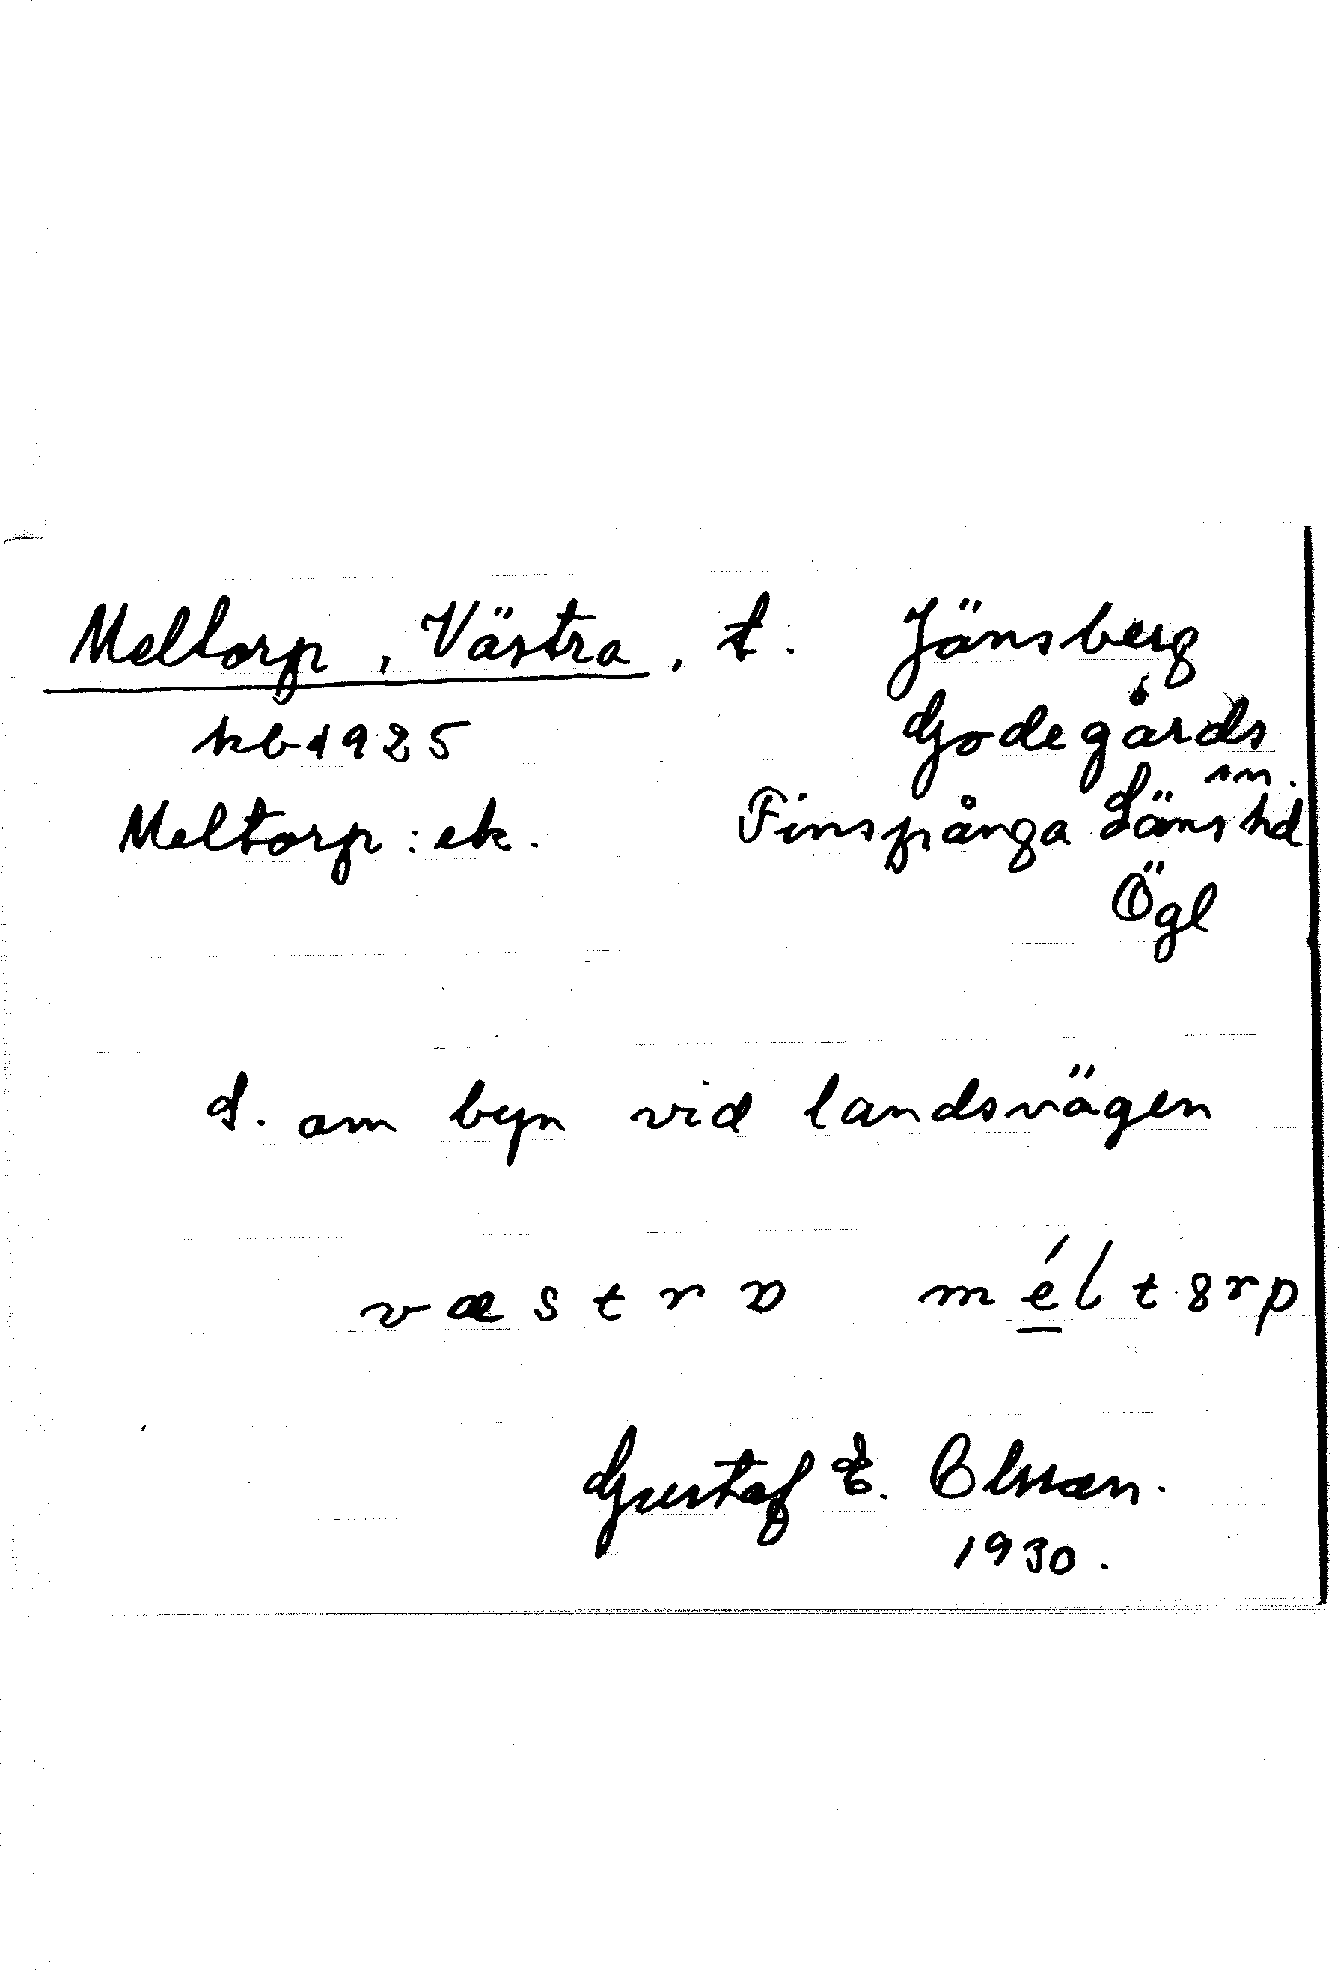 Meltorp, Västra, t. Jänsberg
kbd 1925 Godegårds
sn.
Meltorp: ek. Finspånga Läns hd
Ögl
S. om byn vid landsvägen
væstrɒ méltɞrp
Gustaf E. Olsson.
1930.